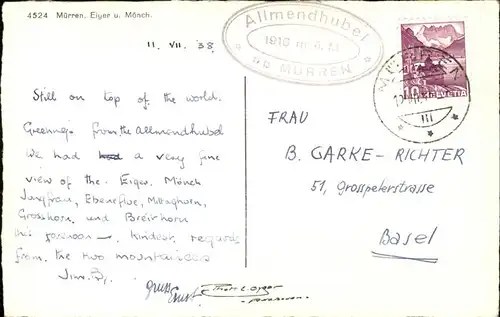 4524 Mürren, Eiger u. Mönch.
11. VII. 38.
Allmendhubel
1910 m ü. M
MÜRREN
MÜRREN
10 HELVETIA
III
Still on top of the world.
Greetings from the Allmendhubel
We had had a very fine
view of the Eiger, Mönch
Jungfrau, Ebeneflue, Mittaghorn,
Grosshorn, and Breithorn
this forenoon — kindest regards
from the two mountaineers
Gruss Ernst
FRAU
B. GARKE-RICHTER
51, Grosspeterstrasse
Basel